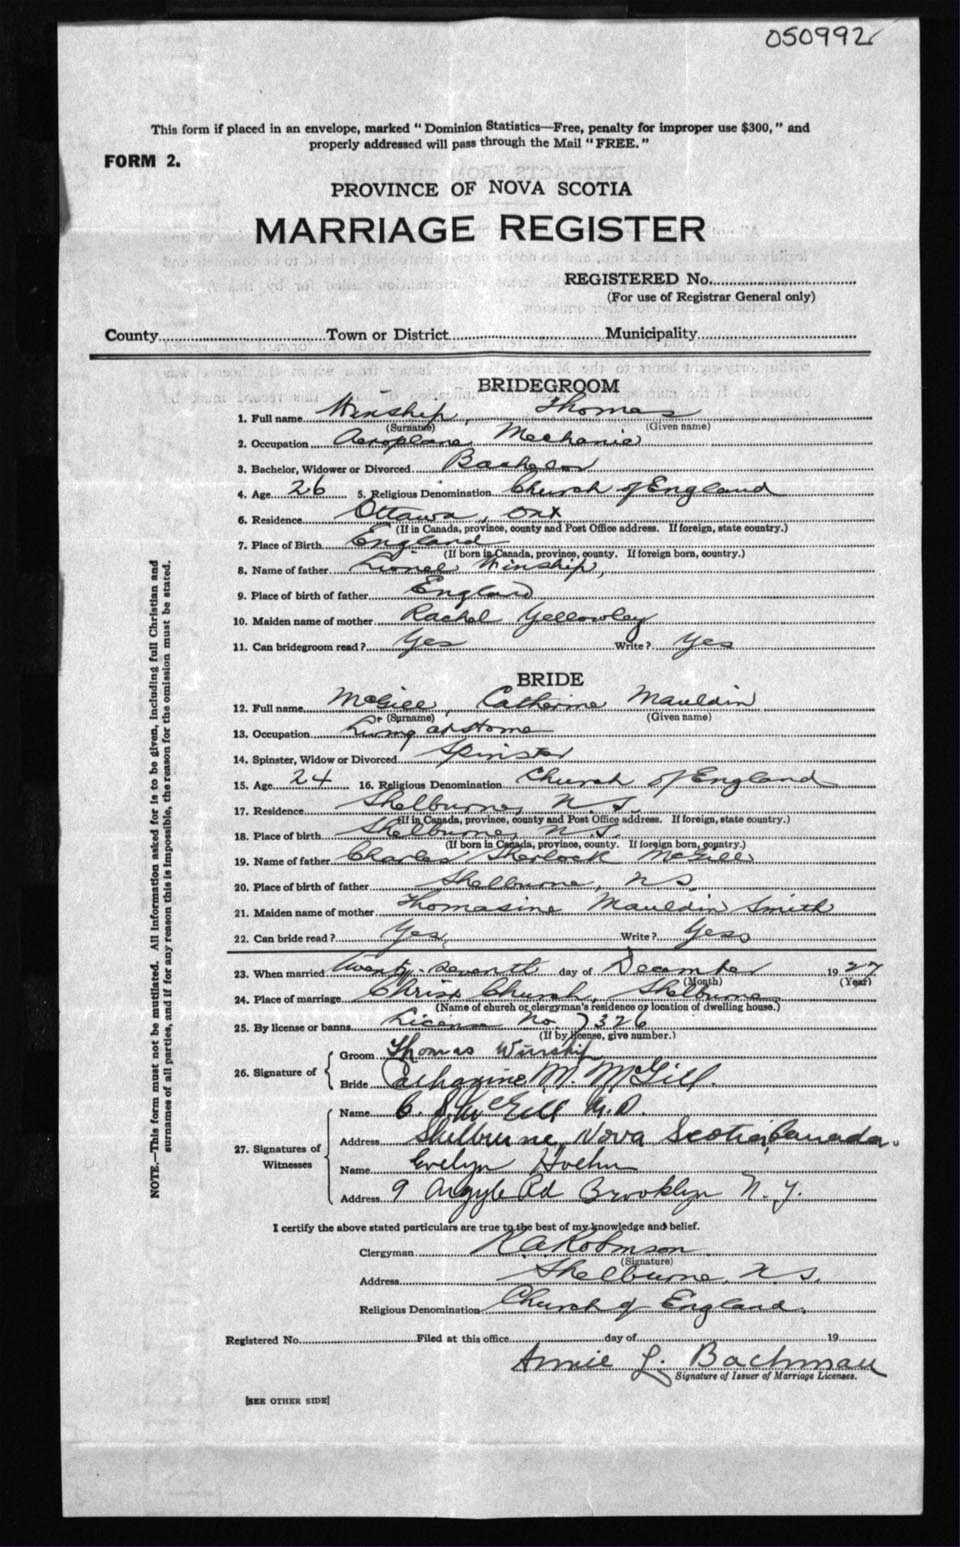 050992
This form if placed in an envelope, marked "Dominion Statistics—Free, penalty for improper use $300," and
properly addressed will pass through the Mail "FREE."
FORM 2.
PROVINCE OF NOVA SCOTIA
MARRIAGE REGISTER
REGISTERED No.
(For use of Registrar General only)
County Town or District Municipality
BRIDEGROOM
1. Full name Winship, Thomas
(Surname) (Given name)
2. Occupation Aeroplane Mechanic
3. Bachelor, Widower or Divorced Bachelor
4. Age 26 5. Religious Denomination Church of England
6. Residence Ottawa, Ont
(If in Canada, province, county and Post Office address. If foreign, state country.)
7. Place of Birth England
(If born in Canada, province, county. If foreign born, country.)
8. Name of father Lionel Winship,
9. Place of birth of father England
10. Maiden name of mother Rachel Yellowley
11. Can bridegroom read? Yes Write? Yes
BRIDE
12. Full name McGill, Catherine Mauldin
(Surname) (Given name)
13. Occupation Living at Home
14. Spinster, Widow or Divorced Spinster
15. Age 24 16. Religious Denomination Church of England
17. Residence Shelburne, N.S.
(If in Canada, province, county and Post Office address. If foreign, state country.)
18. Place of birth Shelburne, N.S.
(If born in Canada, province, county. If foreign born, country.)
19. Name of father Charles Sherlock McGill
20. Place of birth of father Shelburne, N.S.
21. Maiden name of mother Thomasine Mauldin Smith
22. Can bride read? Yes, Write? Yes
23. When married Twenty-seventh day of December 1927
(Month) (Year)
24. Place of marriage Christ Church, Shelburne
(Name of church or clergyman's residence or location of dwelling house.)
25. By license or banns License No. 7326
(If by license, give number.)
26. Signature of { Groom Thomas Winship
Bride Catherine M. McGill.
27. Signatures of Witnesses { Name C. S. McGill M.D.
Address Shelburne, Nova Scotia, Canada.
Name Evelyn Hoehn
Address 9 Argyle Rd Brooklyn N.Y.
I certify the above stated particulars are true to the best of my knowledge and belief.
Clergyman Robinson
(Signature)
Address Shelburne, N.S.
Religious Denomination Church of England.
Registered No. Filed at this office day of 19
Annie L. Bachman
Signature of Issuer of Marriage Licenses.
[SEE OTHER SIDE]
NOTE.—This form must not be mutilated. All information asked for is to be given, including full Christian and
surnames of all parties, and if for any reason this is impossible, the reason for the omission must be stated.